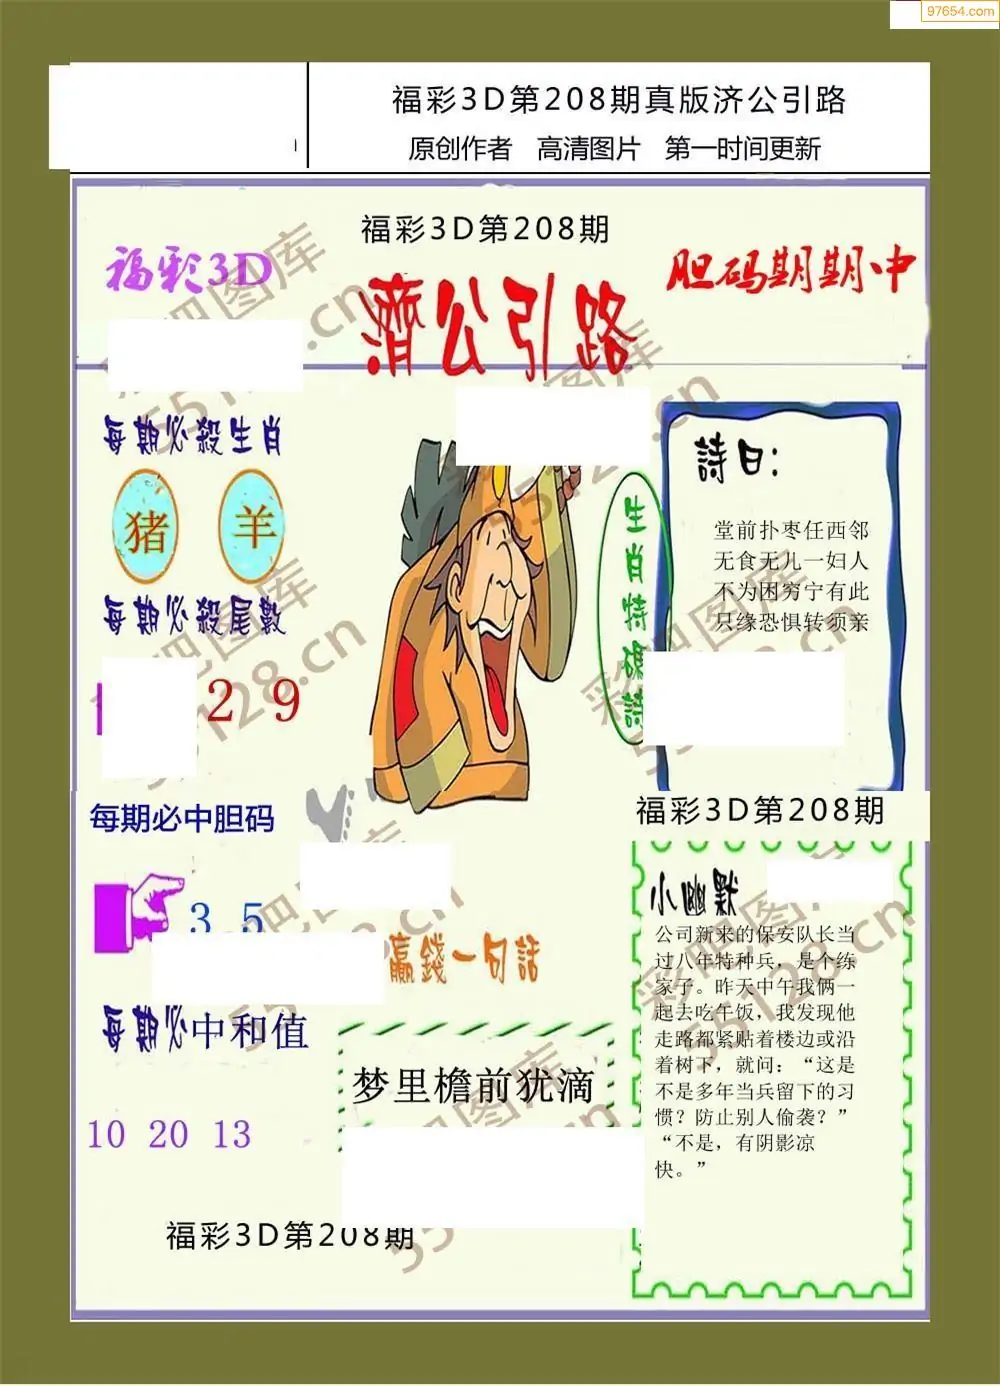 97654.com
福彩3D第208期真版济公引路
原创作者 高清图片 第一时间更新
福彩3D第208期
福彩3D
濟公引路
胆码期期中
每期必殺生肖
猪 羊
每期必殺尾數
2 9
每期必中胆码
3 5
每期必中和值
10 20 13
福彩3D第208期
生肖特碼詩
詩曰：
堂前扑枣任西邻
无食无儿一妇人
不为困穷宁有此
只缘恐惧转须亲
福彩3D第208期
小幽默
公司新来的保安队长当
过八年特种兵，是个练
家子。昨天中午我俩一
起去吃午饭，我发现他
走路都紧贴着楼边或沿
着树下，就问：“这是
不是多年当兵留下的习
惯？防止别人偷袭？”
“不是，有阴影凉
快。”
赢錢一句話
梦里檐前犹滴
彩吧图库
55128.cn